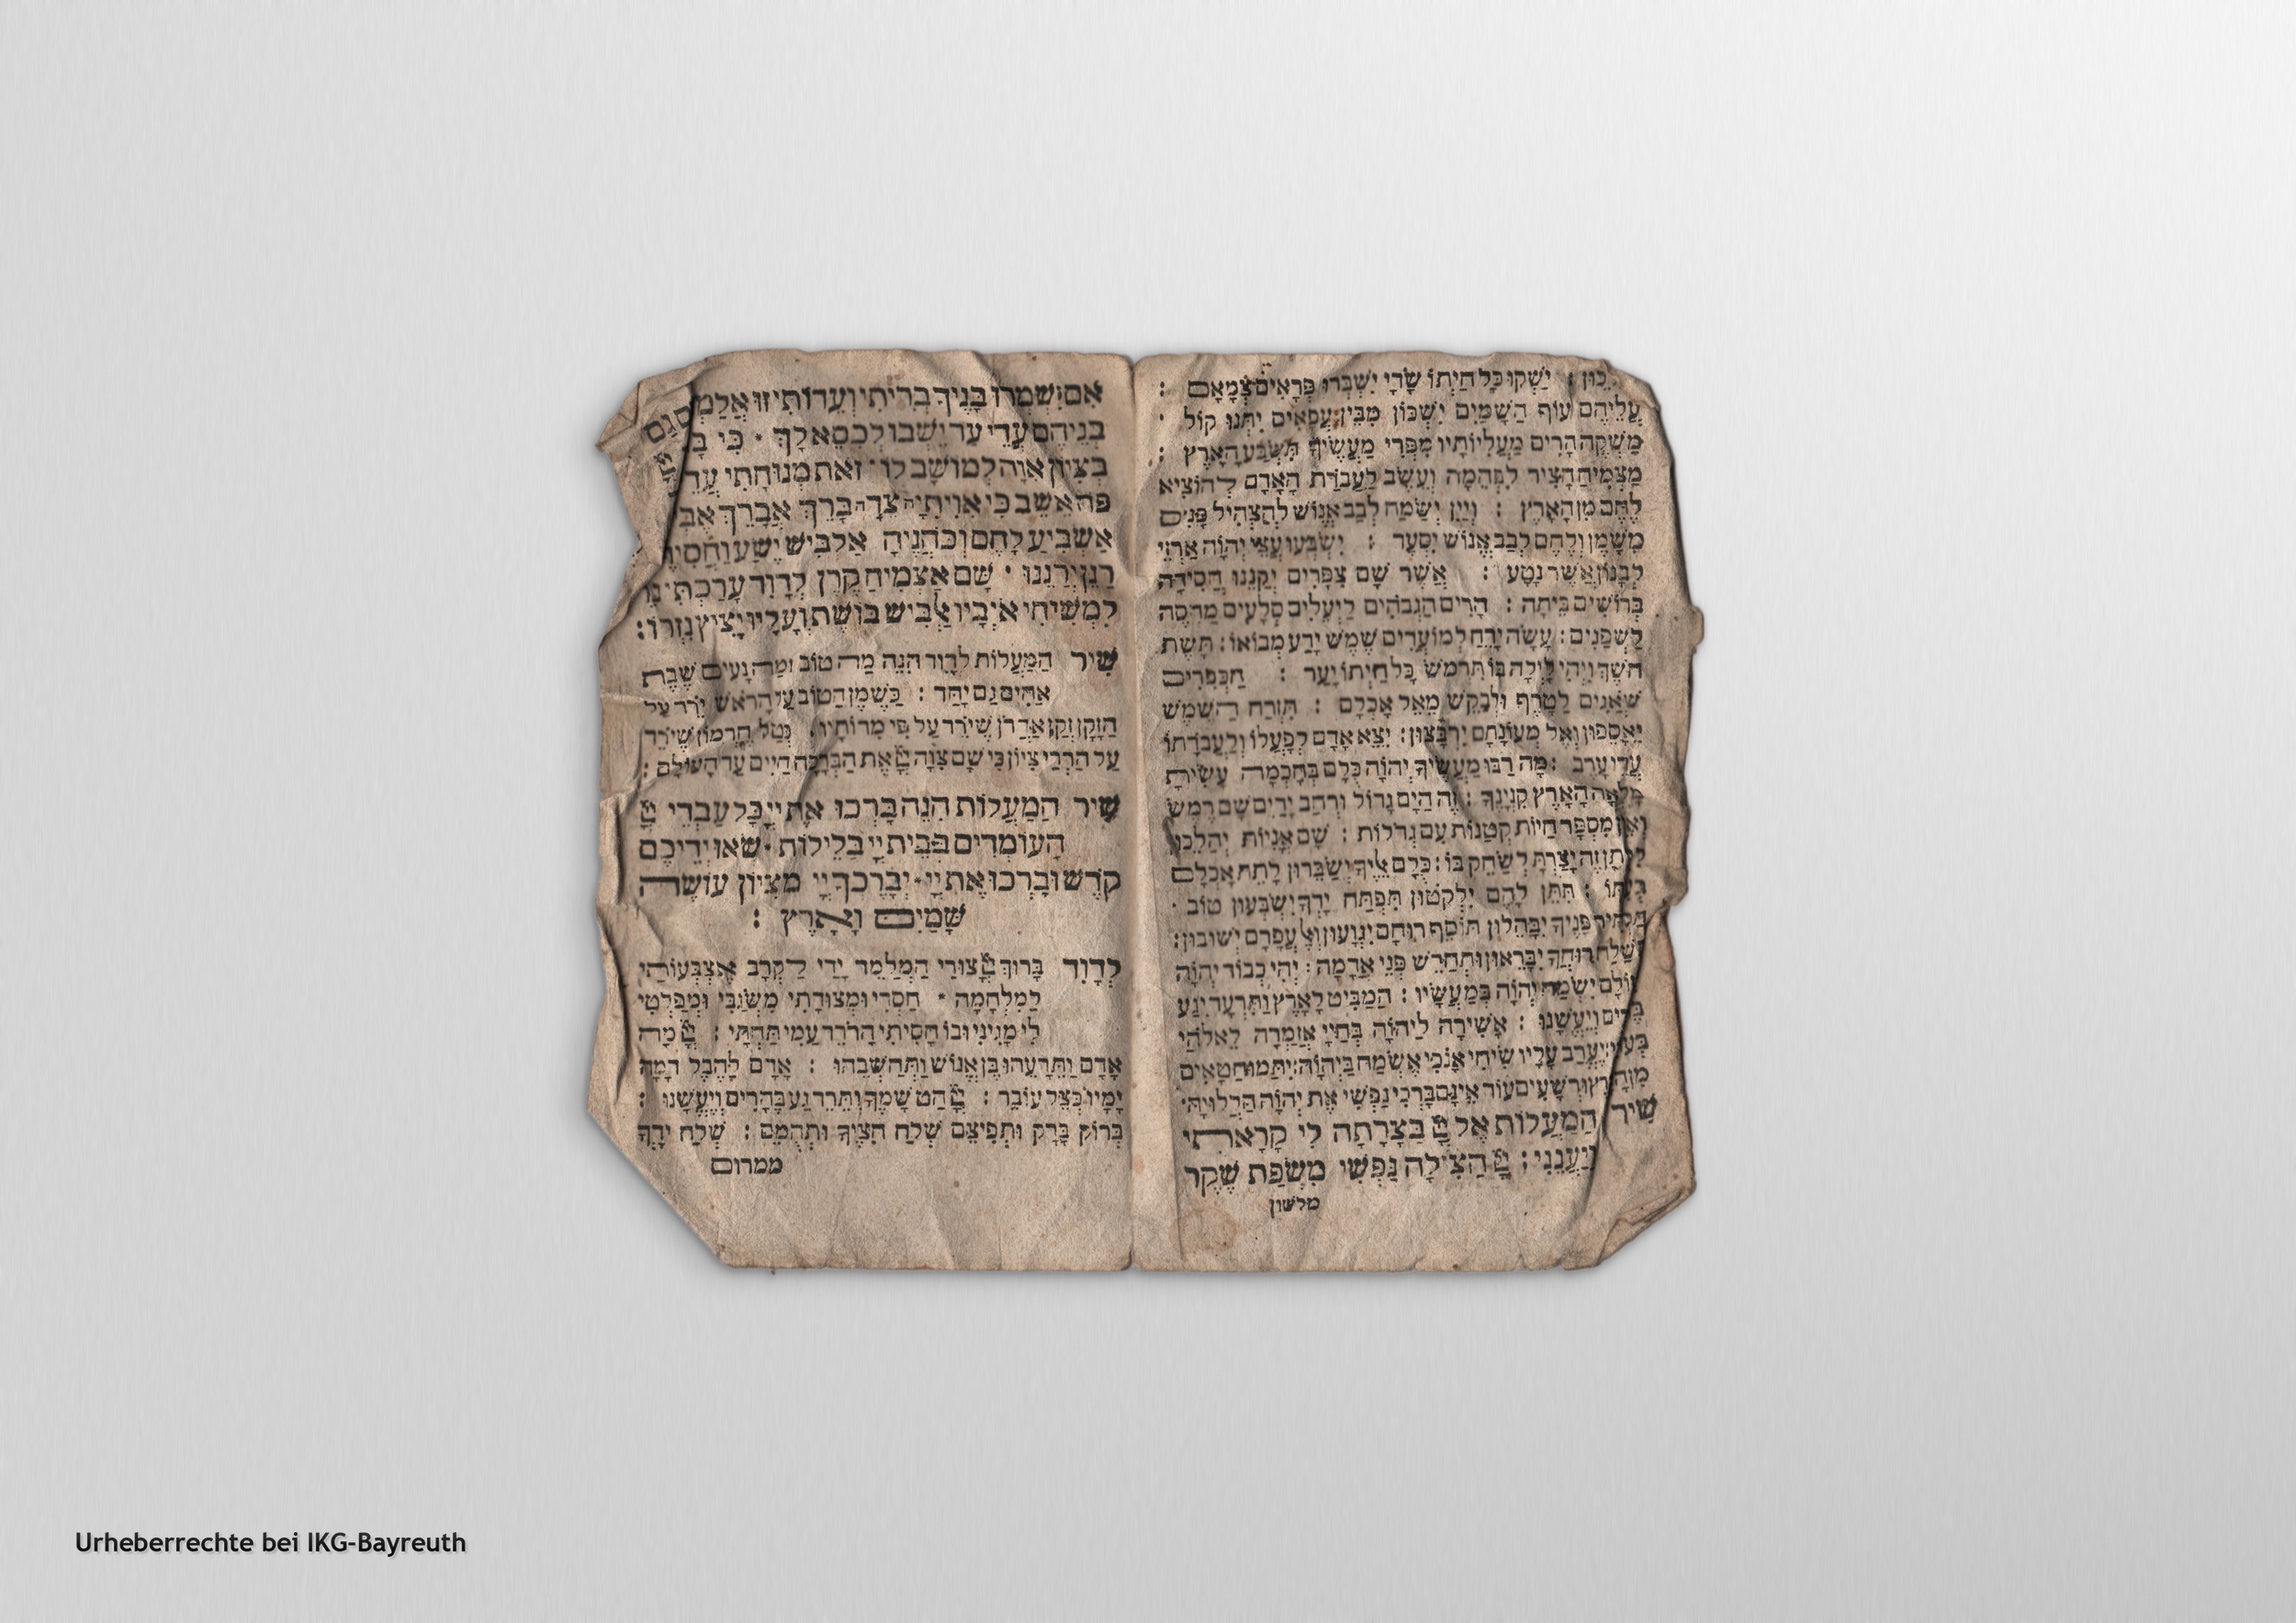 ישקו כל חיתו שדי ישברו פראים צמאם :
עליהם עוף השמים ישכון מבין עפאים יתנו קול ·
משקה הרים מעליותיו מפרי מעשיך תשבע הארץ :
מצמיח חציר לבהמה ועשב לעבדת האדם להוציא
לחם מן הארץ : ויין ישמח לבב אנוש להצהיל פנים
משמן ולחם לבב אנוש יסעד : ישבעו עצי יהוה ארזי
לבנון אשר נטע : אשר שם צפרים יקננו חסידה
ברושים ביתה : הרים הגבהים ליעלים סלעים מחסה
לשפנים : עשה ירח למועדים שמש ידע מבואו : תשת
חשך ויהי לילה בו תרמש כל חיתו יער : הכפרים
שאגים לטרף ולבקש מאל אכלם : תזרח השמש
יאספון ואל מעונתם ירבצון : יצא אדם לפעלו ולעבדתו
עדי ערב : מה רבו מעשיך יהוה כלם בחכמה עשית
מלאה הארץ קנינך : זה הים גדול ורחב ידים שם רמש
ואין מספר חיות קטנות עם גדלות : שם אניות יהלכון
לויתן זה יצרת לשחק בו : כלם אליך ישברון לתת אכלם
בעתו : תתן להם ילקטון תפתח ידך ישבעון טוב ·
תסתיר פניך יבהלון תוסף רוחם יגועון ואל עפרם ישובון :
תשלח רוחך יבראון ותחדש פני אדמה : יהי כבוד יהוה
לעולם ישמח יהוה במעשיו : המביט לארץ ותרעד יגע
בהרים ויעשנו : אשירה ליהוה בחיי אזמרה לאלהי
בעודי : יערב עליו שיחי אנכי אשמח ביהוה : יתמו חטאים
מן הארץ ורשעים עוד אינם ברכי נפשי את יהוה הללויה ·
שיר המעלות אל יי בצרתה לי קראתי
ויענני : יי הצילה נפשי משפת שקר
מלשון
אם ישמרו בניך בריתי ועדותי זו אלמדם גם
בניהם עדי עד ישבו לכסא לך · כי בחר יי
בציון אוה למושב לו · זאת מנוחתי עדי עד
פה אשב כי אויתיה צדה ברך אברך אביוניה
אשביע לחם וכהניה אלביש ישע וחסידיה
רנן ירננו · שם אצמיח קרן לדוד ערכתי נר
למשיחי אויביו אלביש בושת ועליו יציץ נזרו :
שיר המעלות לדוד הנה מה טוב ומה נעים שבת
אחים גם יחד : כשמן הטוב על הראש יורד על
הזקן זקן אהרן שיורד על פי מדותיו : כטל חרמון שיורד
על הררי ציון כי שם צוה יי את הברכה חיים עד העולם :
שיר המעלות הנה ברכו את יי כל עבדי יי
העומדים בבית יי בלילות · שאו ידיכם
קדש וברכו את יי · יברכך יי מציון עושה
שמים וארץ :
לדוד ברוך יי צורי המלמד ידי לקרב אצבעותי
למלחמה · חסדי ומצודתי משגבי ומפלטי
לי מגיני ובו חסיתי הרודד עמי תחתי : יי מה
אדם ותדעהו בן אנוש ותחשבהו : אדם להבל דמה
ימיו כצל עובר : יי הט שמיך ותרד גע בהרים ויעשנו :
ברוק ברק ותפיצם שלח חציך ותהמם : שלח ידך
ממרום
Urheberrechte bei IKG-Bayreuth